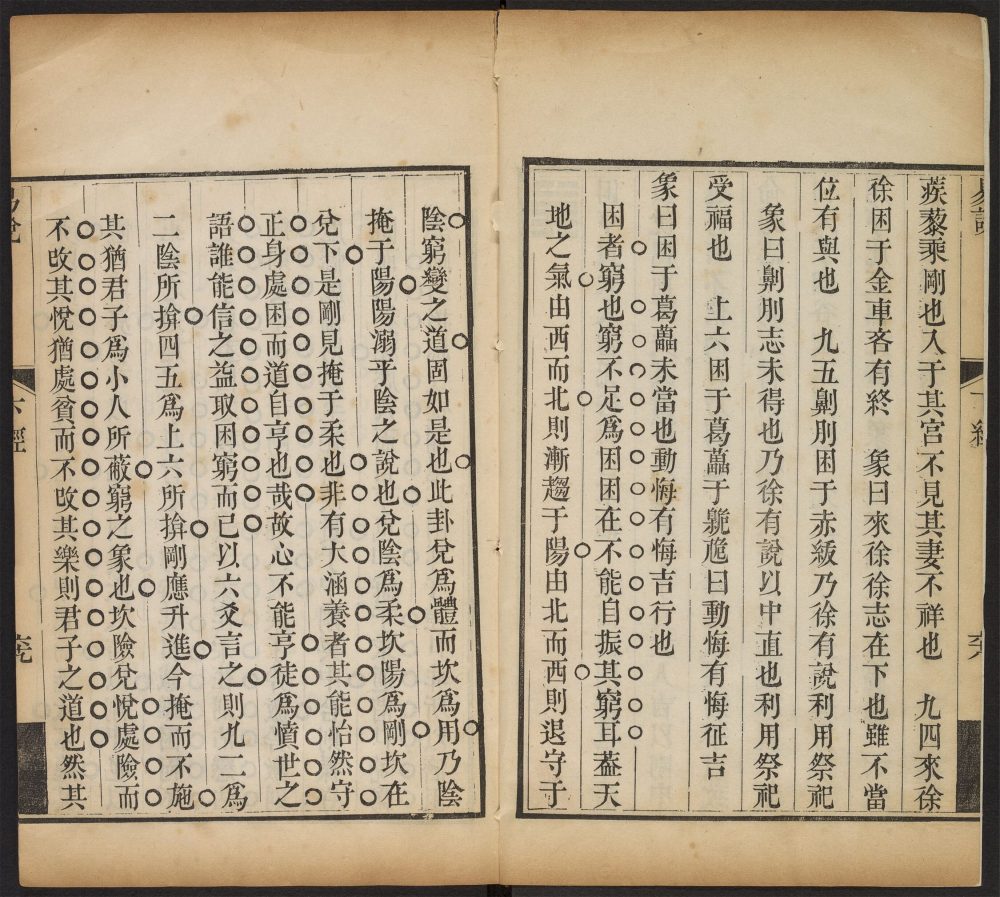 蒺藜乘剛也入于其宮不見其妻不祥也　九四來徐
徐困于金車吝有終　象曰來徐徐志在下也雖不當
位有與也　九五劓刖困于赤紱乃徐有說利用祭祀
象曰劓刖志未得也乃徐有說以中直也利用祭祀
受福也　上六困于葛藟于臲卼曰動悔有悔征吉
象曰困于葛藟未當也動悔有悔吉行也
困者窮也窮不足爲困困在不能自振其窮耳葢天
地之氣由西而北則漸趨于陽由北而西則退守于
陰窮變之道固如是也此卦兌爲體而坎爲用乃陰
掩于陽陽溺乎陰之說也兌陰爲柔坎陽爲剛坎在
兌下是剛見掩于柔也非有大涵養者其能怡然守
正身處困而道自亨也哉故心不能亨徒爲憤世之
語誰能信之益取困窮而已以六爻言之則九二爲
二陰所揜四五爲上六所揜剛應升進今掩而不施
其猶君子爲小人所蔽窮之象也坎險兌悅處險而
不改其悅猶處貧而不改其樂則君子之道也然其
下經